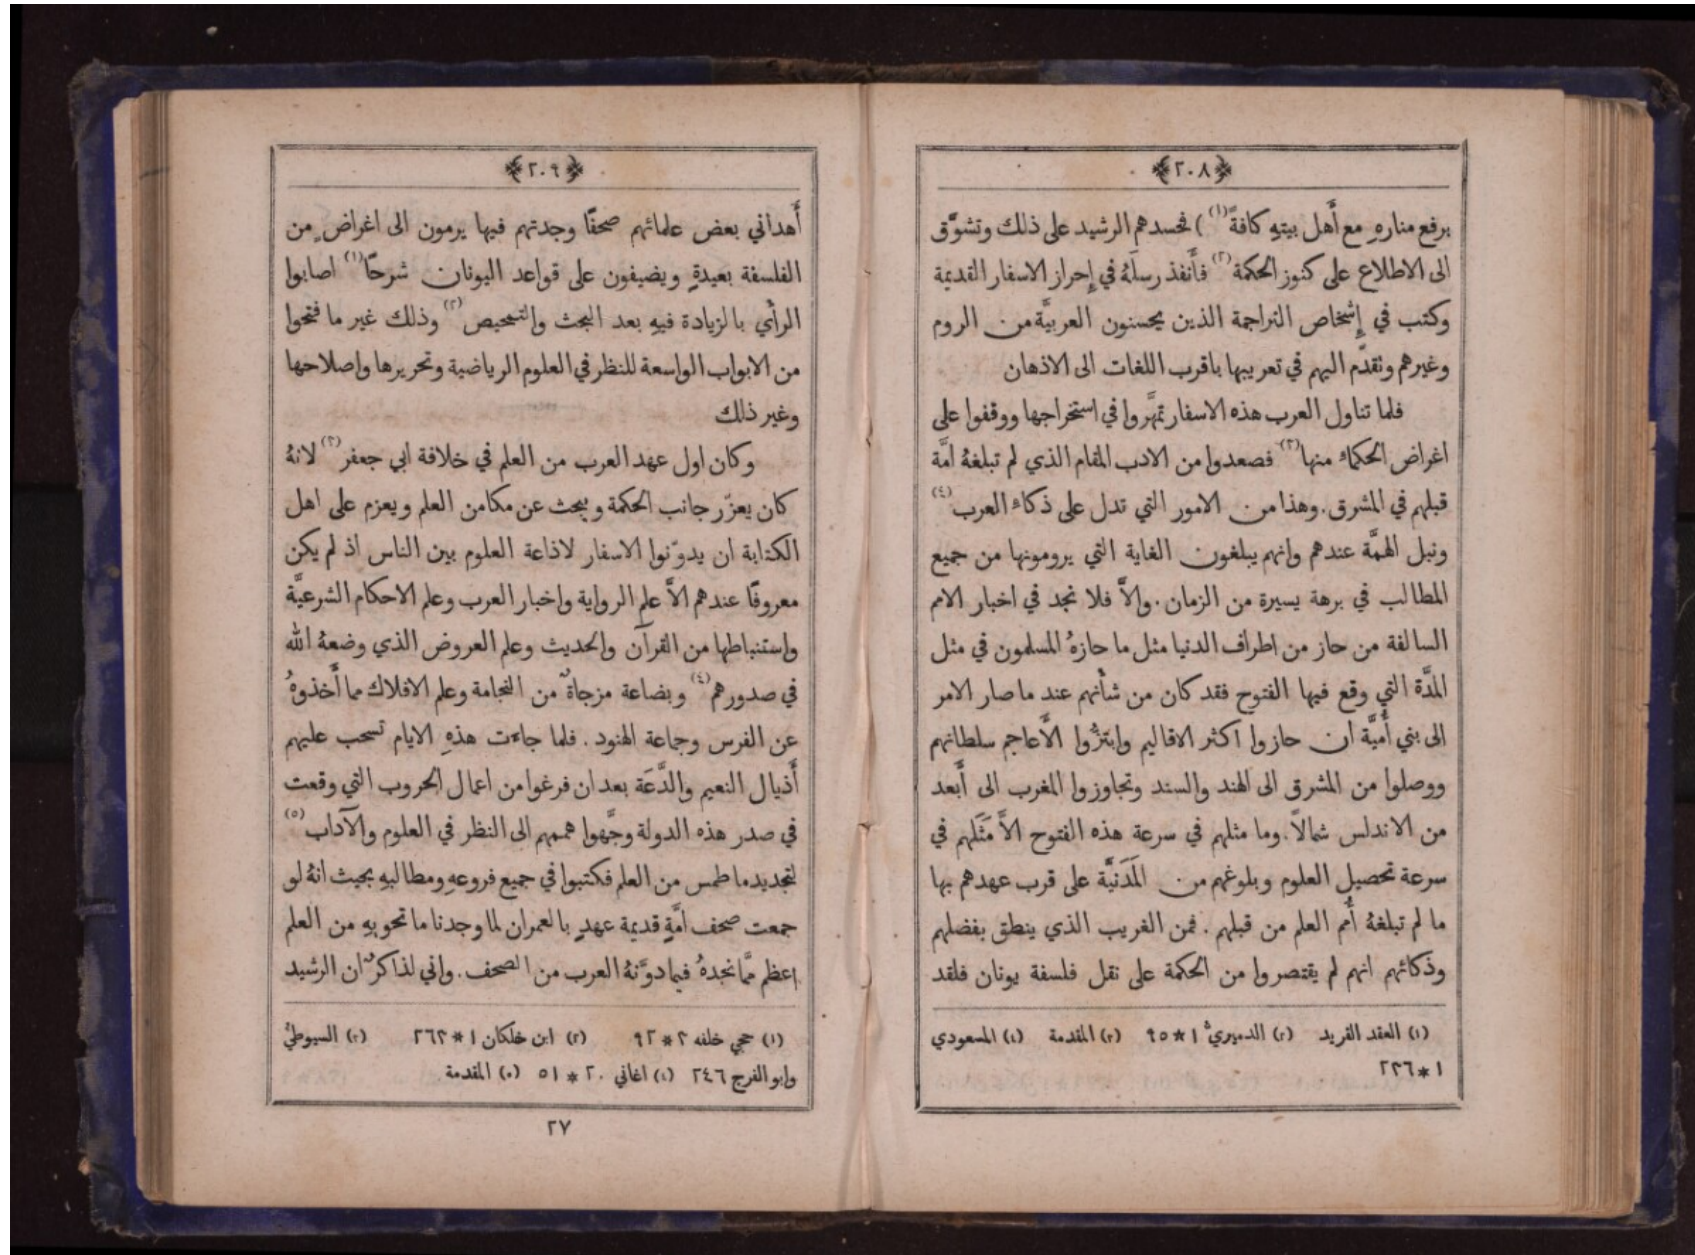 ﴿٢٠٨﴾
برفع منارهِ مع أَهل بيتهِ كافةً (١) ) فحسدهم الرشيد على ذلك وتشوَّق
الى الاطلاع على كنوز الحكمة (٢) فأَنفذ رسلَهُ في إِحراز الاسفار القديمة
وكتب في إِشخاص التراجمة الذين يحسنون العربيَّة من الروم
وغيرهم ونقدَّم اليهم في تعريبها باقرب اللغات الى الاذهان
فلما تناول العرب هذه الاسفار تمهَّروا في استخراجها ووقفوا على
اغراض الحكماء منها (٣) فصعدوا من الادب المقام الذي لم تبلغهُ امَّة
قبلهم في المشرق. وهذا من الامور التي تدل على ذكاء العرب (٤)
ونبل الهمَّة عندهم وانهم يبلغون الغاية التي يرومونها من جميع
المطالب في برهة يسيرة من الزمان. والَّا فلا نجد في اخبار الامم
السالفة من حاز من اطراف الدنيا مثل ما حازهُ المسلمون في مثل
المدَّة التي وقع فيها الفتوح فقد كان من شأنهم عند ما صار الامر
الى بني أُميَّة ان حازوا اكثر الاقاليم وابتزُّوا الأَعاجم سلطانهم
ووصلوا من المشرق الى الهند والسند وتجاوزوا المغرب الى أَبعد
من الاندلس شمالاً. وما مثلهم في سرعة هذه الفتوح الاَّ مَثَلهم في
سرعة تحصيل العلوم وبلوغهم من المَدَنيَّة على قرب عهدهم بها
ما لم تبلغهُ أُمم العلم من قبلهم. فمن الغريب الذي ينطق بفضلهم
وذكائهم انهم لم يقتصروا من الحكمة على نقل فلسفة يونان فلقد
(١) العقد الفريد (٢) الدميريّ ١*٩٥ (٣) المقدمة (٤) المسعودي
١*٢٣٦
﴿٢٠٩﴾
أَهداني بعض علمائهم صحفًا وجدتهم فيها يرمون الى اغراضٍ من
الفلسفة بعيدةٍ ويضيفون على قواعد اليونان شرحًا (١) اصابوا
الرأي بالزيادة فيهِ بعد البحث والتمحيص (٢) وذلك غير ما فتحوا
من الابواب الواسعة للنظر في العلوم الرياضية وتحريرها واصلاحها
وغير ذلك
وكان اول عهد العرب من العلم في خلافة ابي جعفر (٣) لانهُ
كان يعزّر جانب الحكمة ويبحث عن مكامن العلم ويعزم على اهل
الكتابة ان يدوّنوا الاسفار لاذاعة العلوم بين الناس اذ لم يكن
معروفًا عندهم الاَّ علم الرواية واخبار العرب وعلم الاحكام الشرعيَّة
واستنباطها من القرآن والحديث وعلم العروض الذي وضعهُ الله
في صدورهم (٤) وبضاعة مزجاةٌ من النجامة وعلم الافلاك مما أَخذوهُ
عن الفرس وجماعة الهنود. فلما جاءت هذهِ الايام تسحب عليهم
أَذيال النعيم والدَّعَة بعد ان فرغوا من اعمال الحروب التي وقعت
في صدر هذه الدولة وجَّهوا هممهم الى النظر في العلوم والآداب (٥)
لتجديد ما طمس من العلم فكتبوا في جميع فروعهِ ومطالبهِ بحيث انهُ لو
جمعت صحف امَّةٍ قديمة عهدٍ بالعمران لما وجدنا ما تحويهِ من العلم
اعظم ممَّا نجدهُ فيما دوَّنهُ العرب من الصحف. واني لذاكرٌ ان الرشيد
(١) حجي خلفه ٢*٩٢ (٢) ابن خلكان ١*٢٦٢ (٣) السيوطيُّ
وابو الفرج ٢٤٦ (٤) اغاني ٢٠*٥١ (٥) المقدمة
٢٧